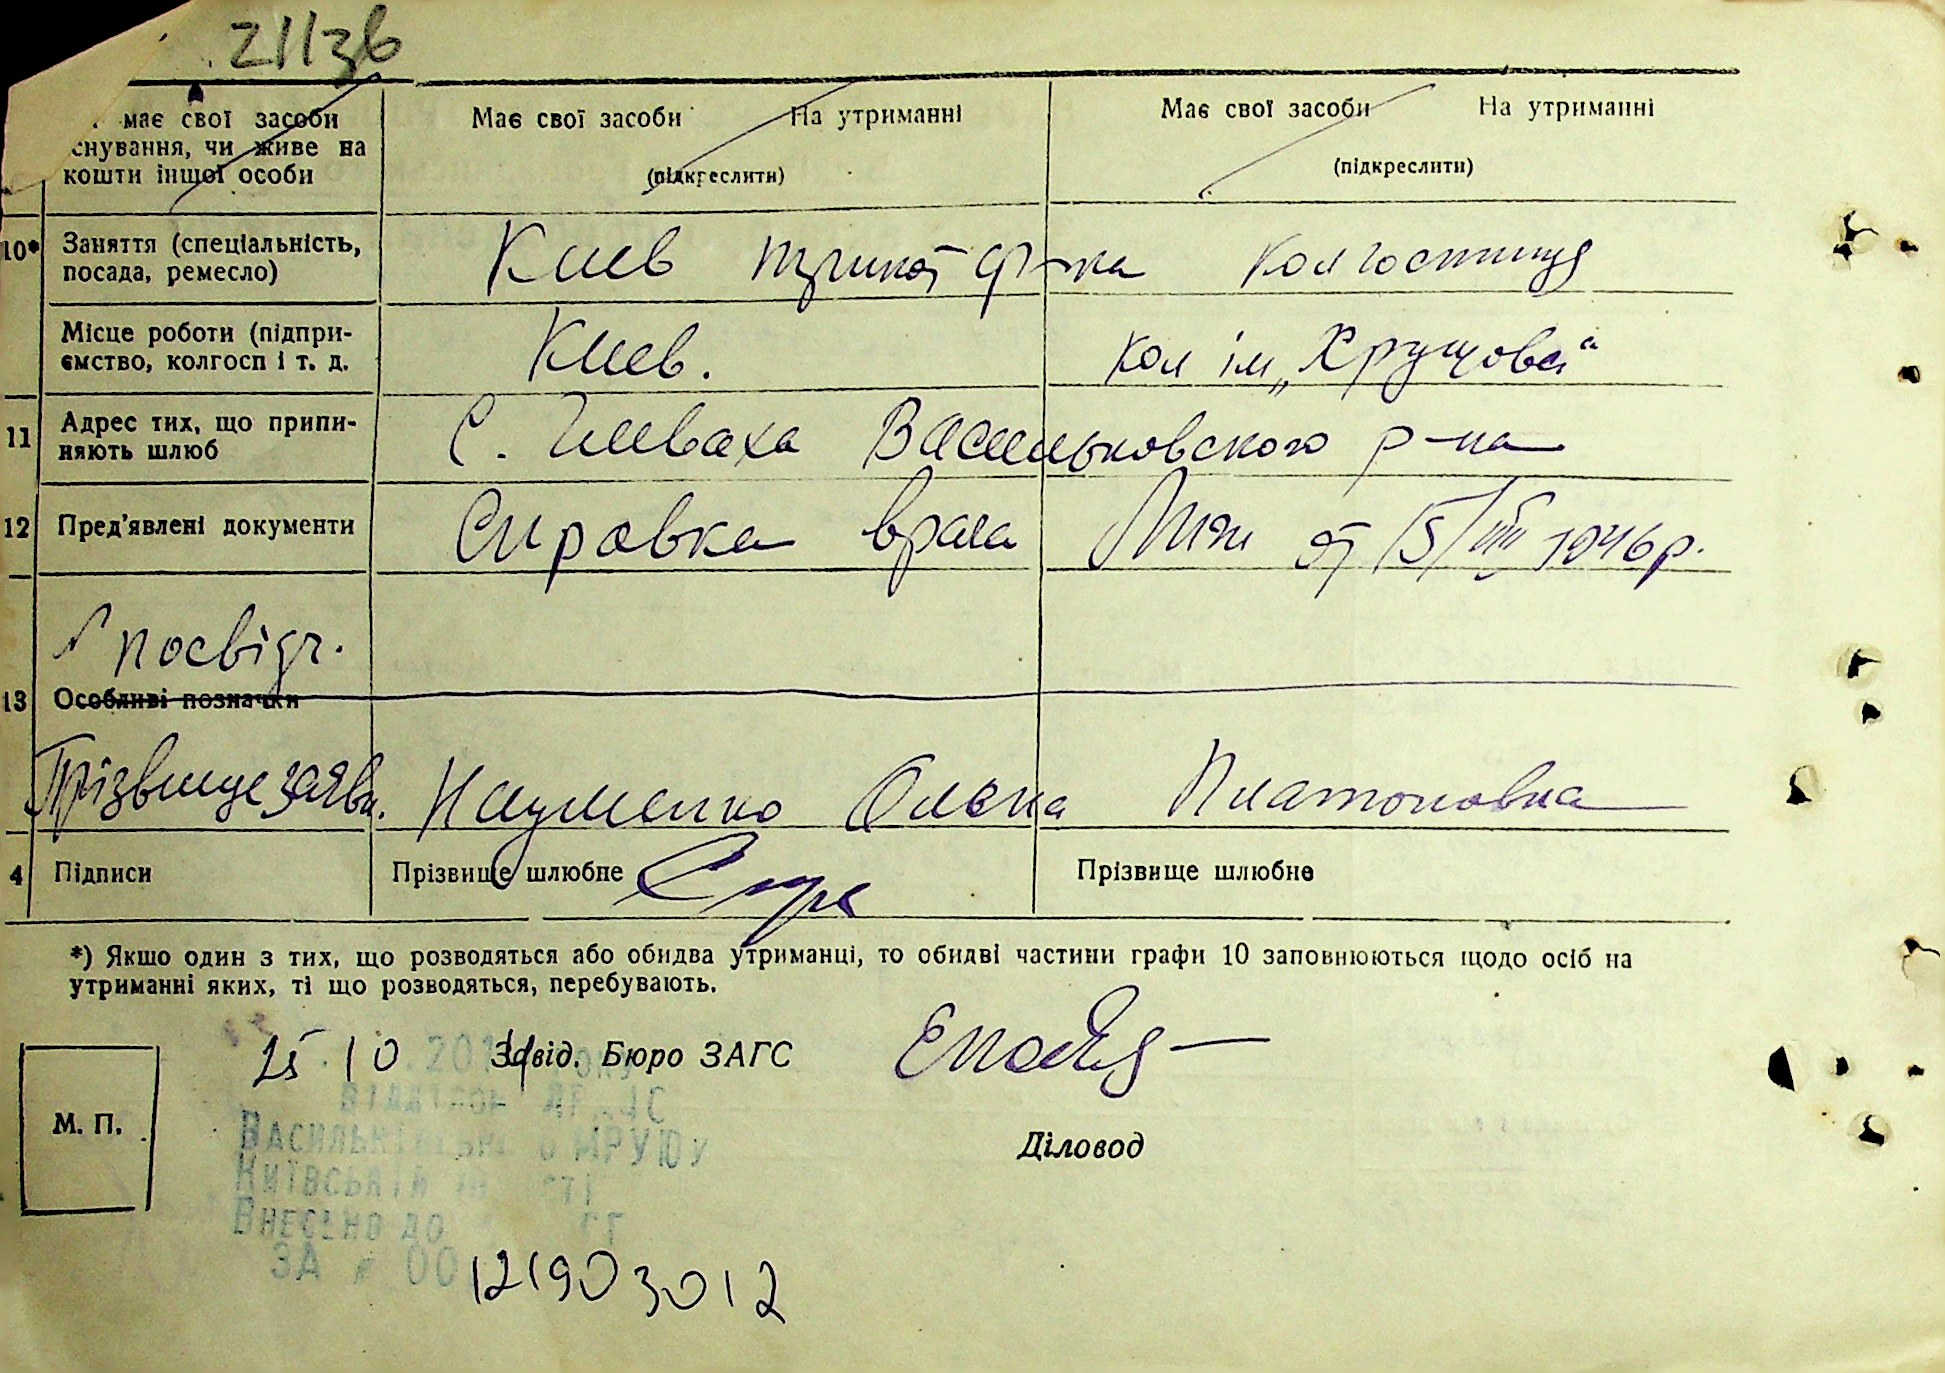 21136
має свої засоби
снування, чи живе на
кошти іншої особи
Має свої засоби На утриманні
(підкреслити)
Має свої засоби На утриманні
(підкреслити)
10* Заняття (спеціальність,
посада, ремесло)
Киев ф-ка
Місце роботи (підпри-
ємство, колгосп і т. д.
Киев.
Кол ім „Хрущова“
11 Адрес тих, що припи-
няють шлюб
С. Глеваха Васильковского р-на
12 Пред'явлені документи
Справка врача от 15/VIII 1946р.
посвідч.
13 Особливі позначки
Прізвище заявн. Науменко Олена Платоновна
4 Підписи
Прізвище шлюбне
Прізвище шлюбне
*) Якщо один з тих, що розводяться або обидва утриманці, то обидві частини графи 10 заповнюються щодо осіб на
утриманні яких, ті що розводяться, перебувають.
25 10 .201 Завід. Бюро ЗАГС
М. П.
Діловод
Внесено до
ЗА № 00121903012